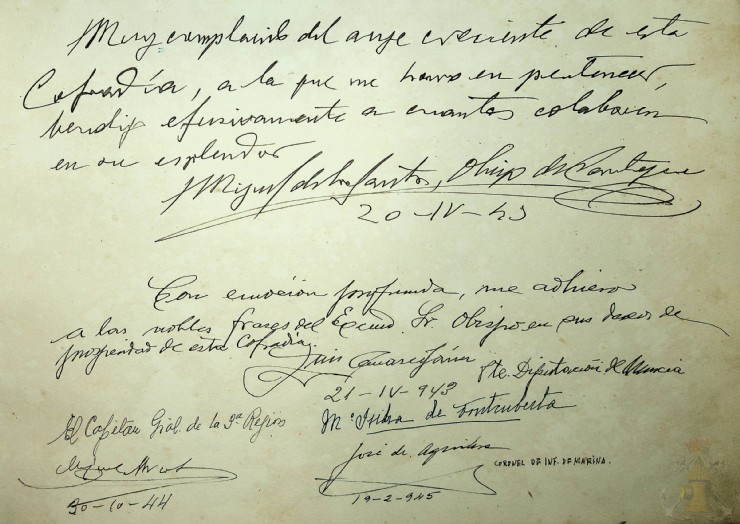 Muy complacido del auge creciente de esta
Cofradía, a la que me honro en pertenecer,
bendigo efusivamente a cuantos colaboren
en su esplendor
Miguel de los Santos, Obispo de Cartagena
20-IV-43
Con emoción profunda, me adhiero
a las nobles frases del Excmo. Sr. Obispo en sus deseos de
prosperidad de esta Cofradía.
Luis
Pte. Diputación de Murcia
21-IV-943
El Capitan Gral. de la 3ª Region
Mª de Fontcuberta
José de Aguilera
CORONEL DE INF. DE MARINA.
30-10-44
19-2-945